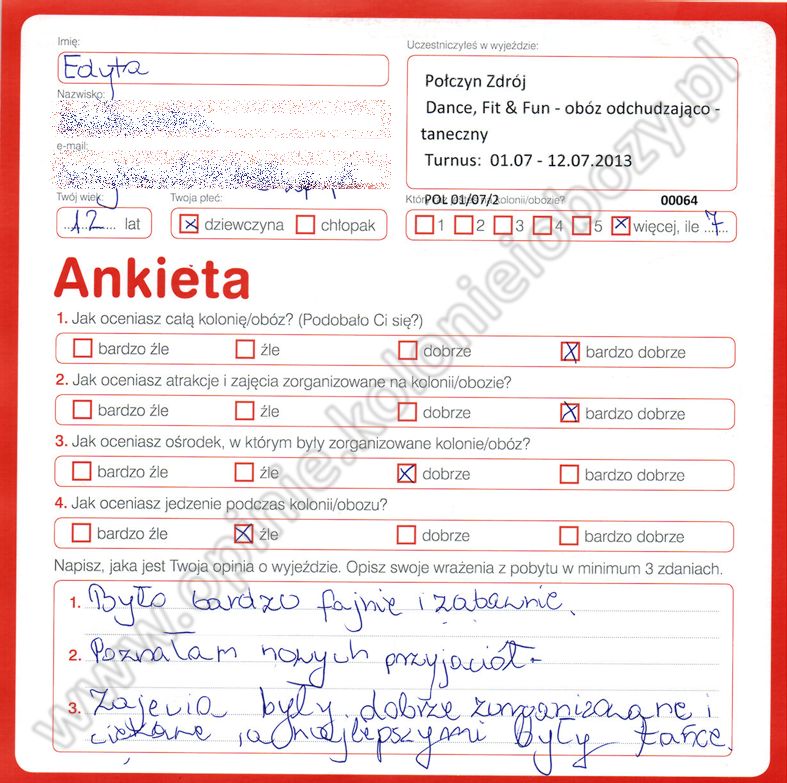 Imię:
Edyta
Uczestniczyłeś w wyjeździe:
Połczyn Zdrój
Dance, Fit & Fun - obóz odchudzająco -
taneczny
Turnus: 01.07 - 12.07.2013
Nazwisko:
e-mail:
Twój wiek:
12 lat
Twoja płeć:
dziewczyna chłopak
POL 01/07/2 kolonii/obozie? 00064
1 2 3 4 5 więcej, ile 7
Ankieta
1. Jak oceniasz całą kolonię/obóz? (Podobało Ci się?)
bardzo źle źle dobrze bardzo dobrze
2. Jak oceniasz atrakcje i zajęcia zorganizowane na kolonii/obozie?
bardzo źle źle dobrze bardzo dobrze
3. Jak oceniasz ośrodek, w którym były zorganizowane kolonie/obóz?
bardzo źle źle dobrze bardzo dobrze
4. Jak oceniasz jedzenie podczas kolonii/obozu?
bardzo źle źle dobrze bardzo dobrze
Napisz, jaka jest Twoja opinia o wyjeździe. Opisz swoje wrażenia z pobytu w minimum 3 zdaniach.
1. Było bardzo fajnie i zabawnie.
2. Poznałam nowych przyjaciół.
3. Zajęcia były dobrze zorganizowane i
ciekawe, a najlepszymi były tańce.
www.opinie.kolonieiobozy.pl